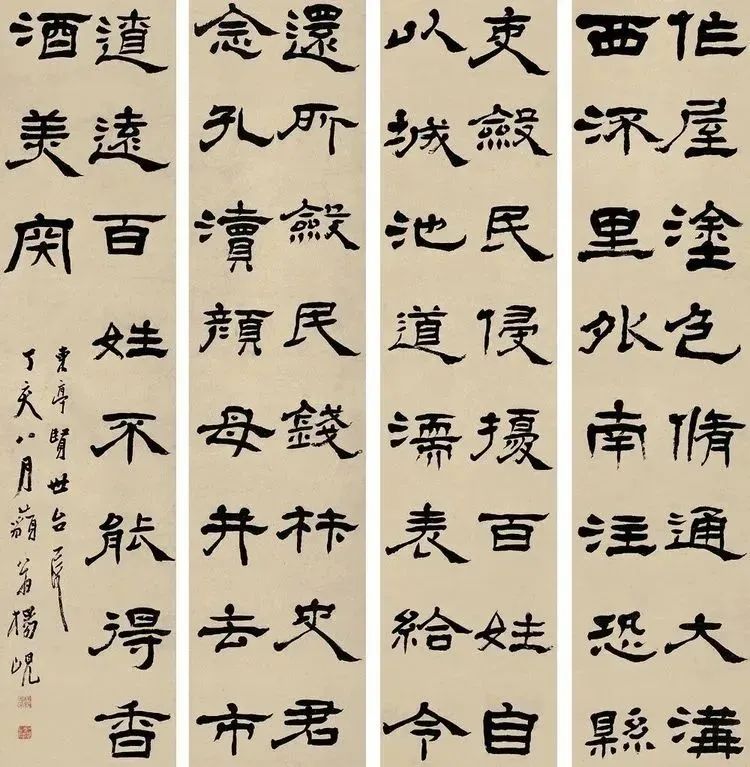 作屋塗色脩通大溝
西流里外南注恐縣
吏斂民侵擾百姓自
以城池道濡表給令
還所斂民錢材史君
念孔瀆顏母井去市
遼遠百姓不能得香
酒美肉
東亭賢世台正
丁亥八月藐翁楊峴